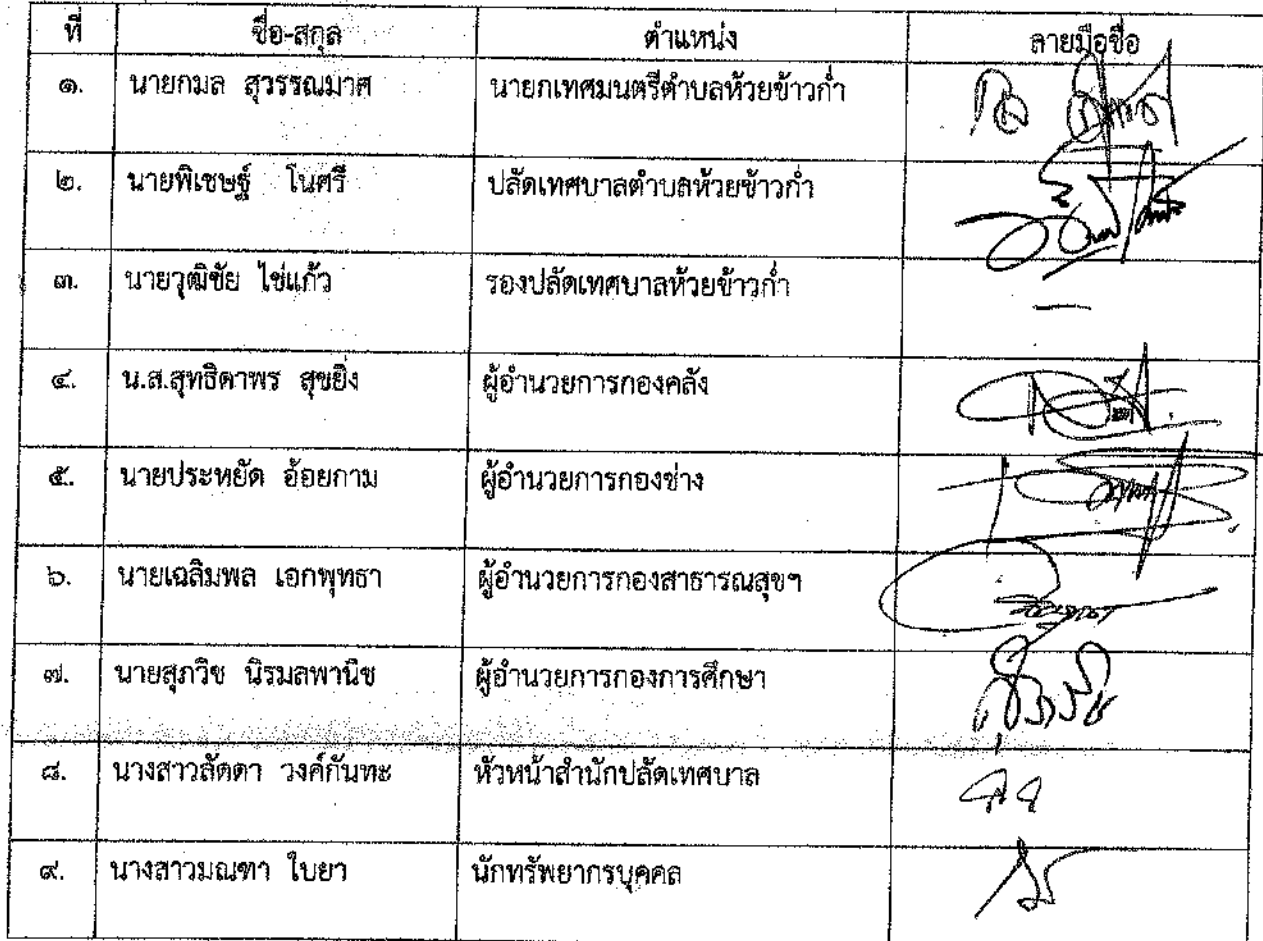 ที่ ชื่อ-สกุล ตำแหน่ง ลายมือชื่อ
๑. นายกมล สุวรรณมาศ นายกเทศมนตรีตำบลห้วยข้าวก่ำ
๒. นายพิเชษฐ์ โนศรี ปลัดเทศบาลตำบลห้วยข้าวก่ำ
๓. นายวุฒิชัย ไข่แก้ว รองปลัดเทศบาลห้วยข้าวก่ำ
๔. น.ส.สุทธิดาพร สุขยิ่ง ผู้อำนวยการกองคลัง
๕. นายประหยัด อ้อยกาม ผู้อำนวยการกองช่าง
๖. นายเฉลิมพล เอกพุทธา ผู้อำนวยการกองสาธารณสุขฯ
๗. นายสุภวิช นิรมลพานิช ผู้อำนวยการกองการศึกษา
๘. นางสาวลัดดา วงค์กันทะ หัวหน้าสำนักปลัดเทศบาล
๙. นางสาวมณฑา ใบยา นักทรัพยากรบุคคล